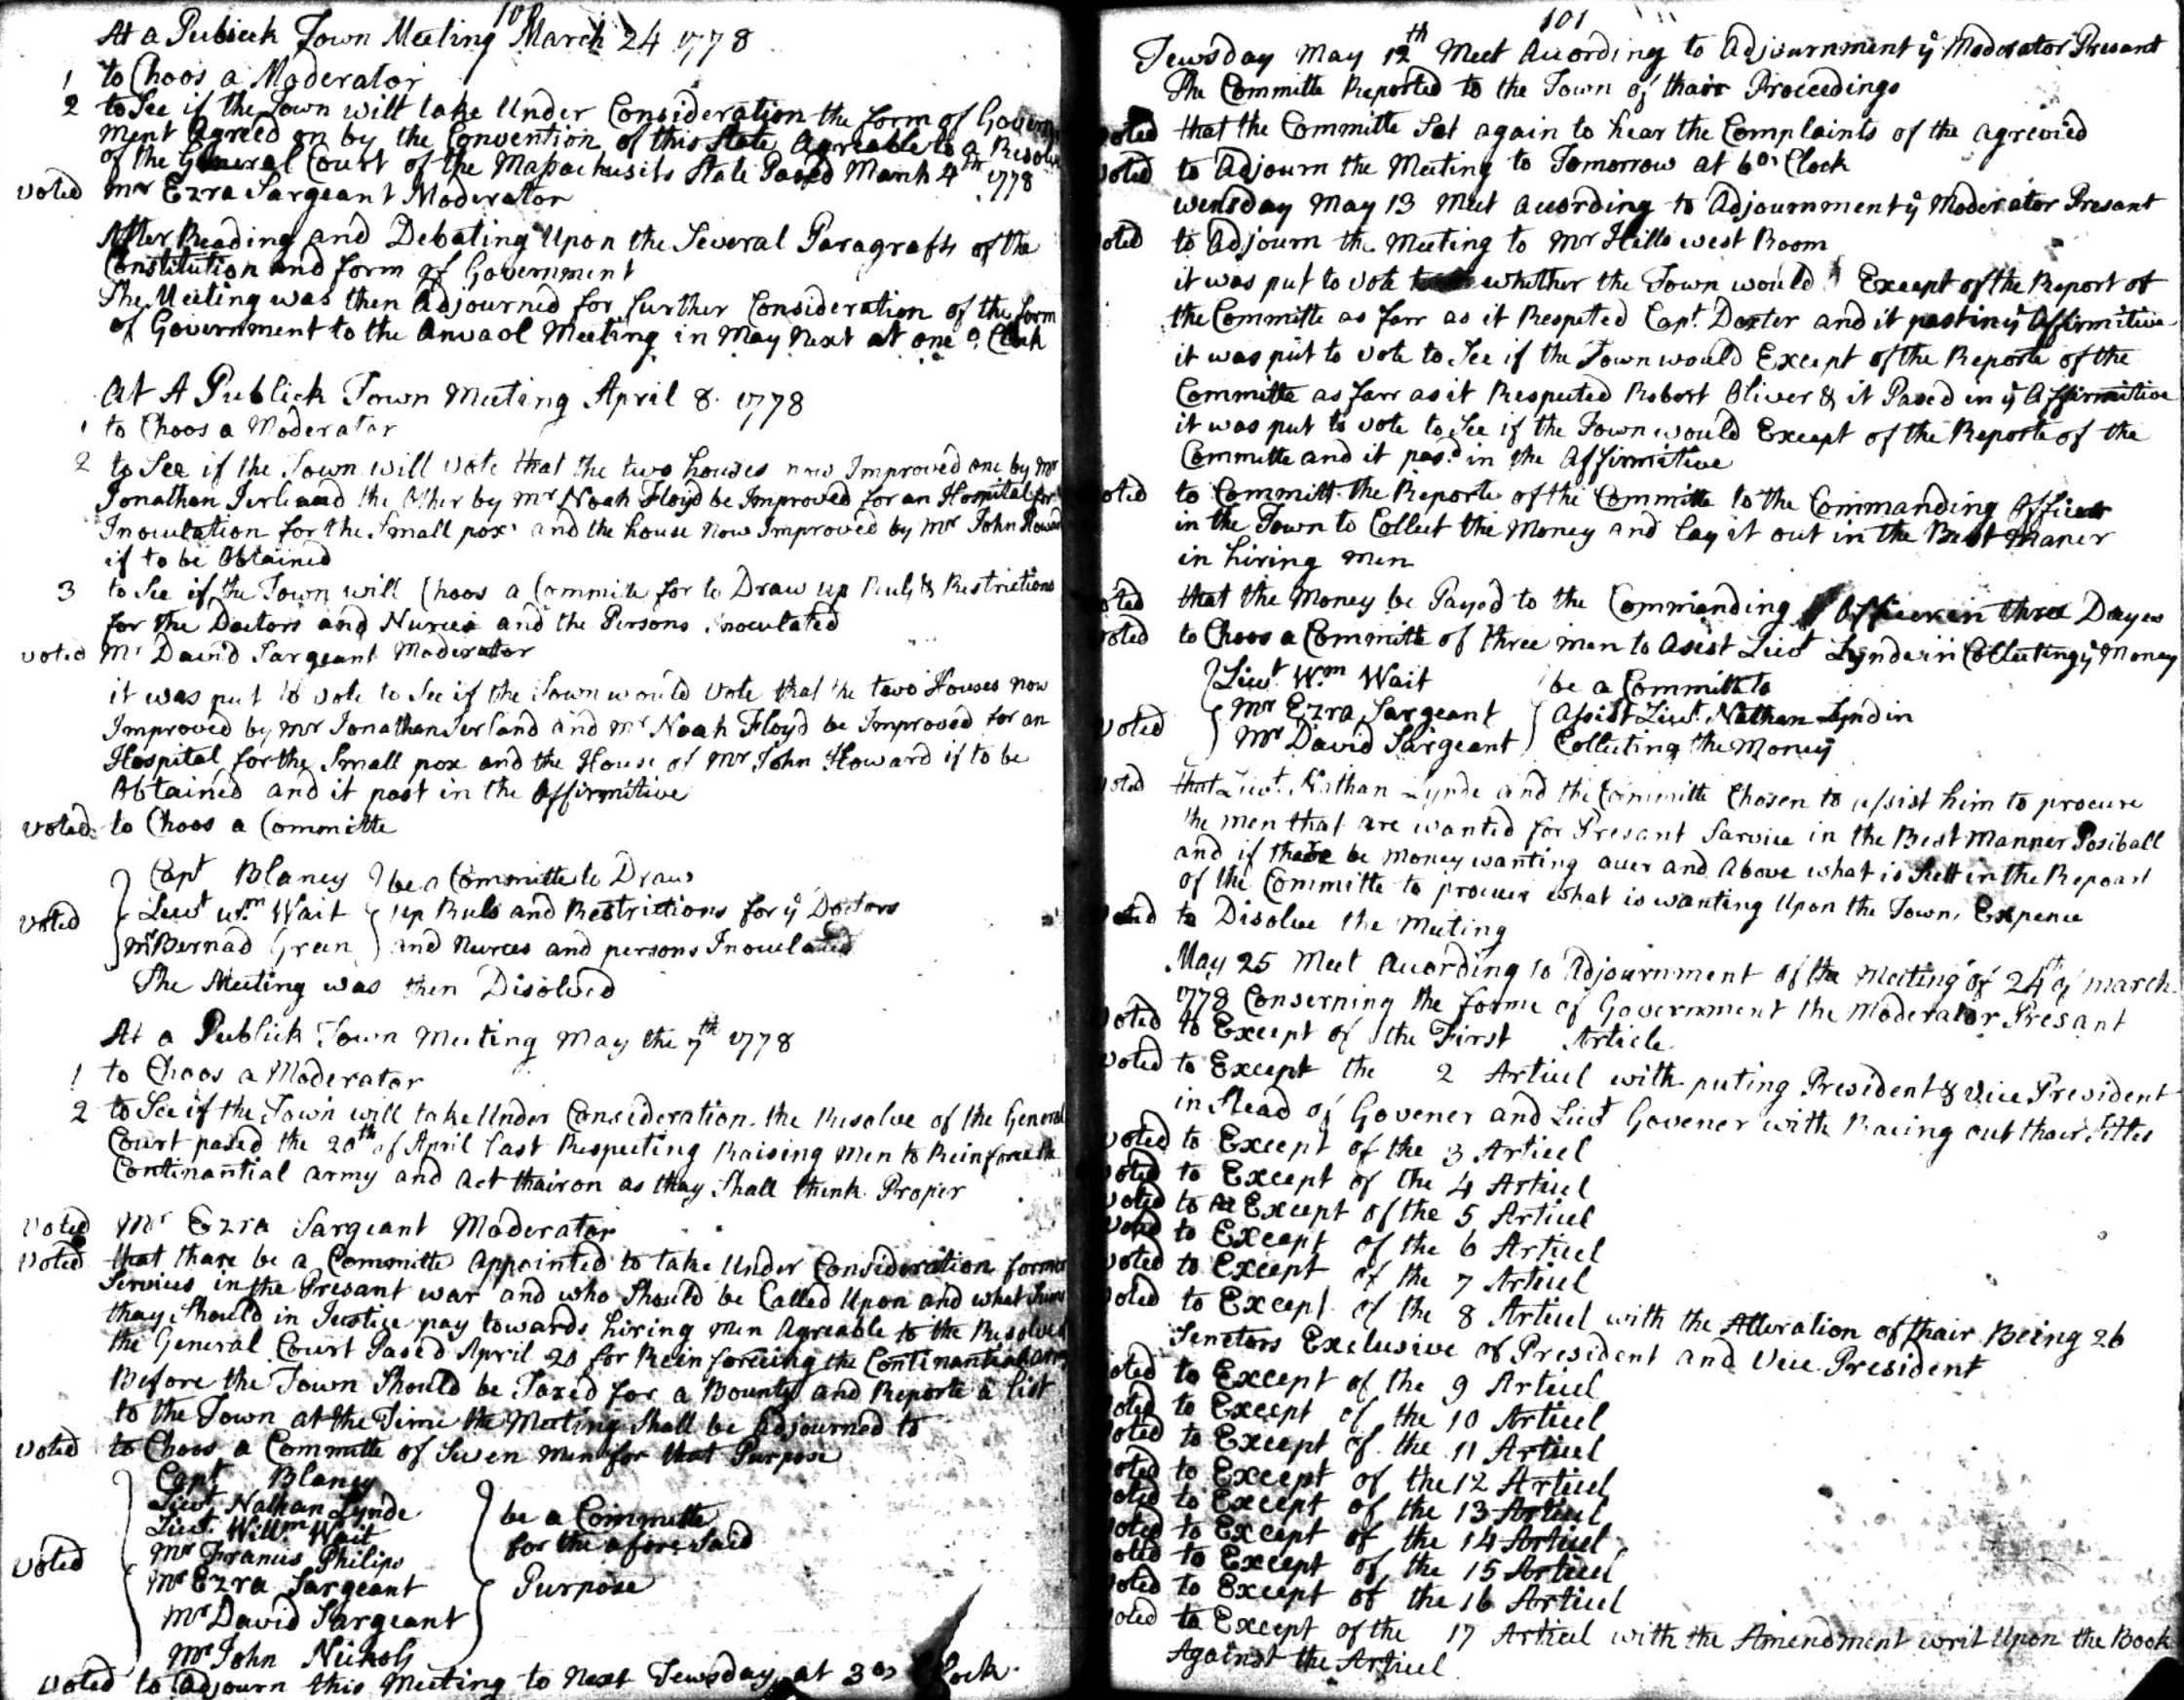 100
At a Publeck Town Meeting March 24 1778
1 to Choos a Moderator
2 to See if the Town will take Under Consideration the form of Govern
ment Agreed on by the Convention of this State Agreable to a Resolve
of the General Court of the Massachusits State Pased March 4th 1778
voted Mr Ezra Sargeant Moderator
After Reading and Debating Upon the Several Paragrafts of the
Constitution and form of Government
The Meeting was then Adjourned for further Consideration of the form
of Government to the Anuaol Meeting in May Next at one o, Clock
At A Publick Town Meeting April 8. 1778
1 to Choos a Moderator
2 to See if the Town will vote that the two houses now Improved one by Mr
Jonathan and the Other by Mr Noah Floyd be Improved for an Hospital for
Inoculation for the Small pox and the house Now Improved by Mr John Howard
if to be Obtained
3 to See if the Town will Choos a Committe for to Draw up Ruls & Restrictions
for the Doctors and Nurces and the Persons Inoculated
voted Mr David Sargeant Moderator
it was put to vote to See if the Town would Vote that the two Houses now
Improved by Mr Jonathan and Mr Noah Floyd be Improved for an
Hospital for the Small pox and the House of Mr John Howard if to be
Obtained and it past in the Affirmitive
voted to Choos a Committe
Capt Blaney be a Committe to Draw
voted Lieut Wm Wait up Ruls and Restrictions for ye Doctors
Mr Bernad Green and Nurces and persons Inoculated
The Meeting was then Disolved
At a Publick Town Meeting May the 7th 1778
1 to Choos a Moderator
2 to See if the Town will take Under Consideration the Resolve of the General
Court pased the 20th of April last Respecting Raising Men to Reinforce the
Continantial army and act thairon as thay Shall think Proper
Voted Mr Ezra Sargeant Moderator
Voted that thare be a Committe Appointed to take Under Consideration former
Services in the Presant war and who Should be Called Upon and what Sums
thay Should in Justice pay towards hiring men Agreable to the Resolves
the General Court Pased April 20 for Reinforcing the Continantial army
Before the Town Should be Taxed for a Bounty and Reporte a list
to the Town at the Time the Meeting Shall be Adjourned to
voted to Choos a Committe of Seven men for that Purpose
Capt Blaney
Lieut Nathan Lynde
Lieut. Willm Wait
Mr Francis Philips
voted Mr Ezra Sargeant
Mr David Sargeant
Mr John Nichols
be a Committe
for the afore Said
Purpose
Voted to Adjourn this Meeting to Next Tewsday at 3 o, Clock
101
Tewsday May 12th Meet Acording to Adjournment ye Moderator Presant
The Committe Reported to the Town of thair Proceedings
voted that the Committe Set again to hear the Complaints of the agreived
voted to Adjourn the Meeting to Tomorrow at 6 o, Clock
wensday May 13 Meet according to Adjournment ye Moderator Presant
voted to Adjourn the Meeting to Mr Hills west Room
it was put to vote whether the Town would Except of the Report of
the Committe as farr as it Respeted Capt. Dexter and it past in ye Affirmitive
it was put to vote to See if the Town would Except of the Reporte of the
Committe as farr as it Respected Robert Oliver & it Pased in ye Affirmitive
it was put to vote to See if the Town would Except of the Reporte of the
Committe and it pasd in the Affirmitive
voted to Committ the Reporte of the Committe to the Commanding Officer
in the Town to Collect the Money and lay it out in the Best Maner
in hiring men
voted that the Money be Payed to the Commanding Officer in three Dayes
voted to Choos a Committe of three men to Asist Lieut Lynde in Collecting ye Money
Lieut. Wm Wait be a Committe to
voted Mr Ezra Sargeant Assist Lieut. Nathan Lynd in
Mr David Sargeant Collecting the Money
voted that Lieut. Nathan Lynde and the Committe Chosen to assist him to procure
the men that are wanted for Presant Sarvice in the Best Manner Posiball
and if thare be money wanting over and Above what is Sett in the Repoart
of the Committe to procuer what is wanting Upon the Town, Expence
voted to Disolve the Meeting
May 25 Meet According to Adjournment of the Meeting of 24th of march
1778 Conserning the forme of Government the Moderator Presant
voted to Except of the First Article
voted to Except the 2 Articel with puting President & Vice President
in Stead of Govener and Lieut Govener with Racing out thair Titles
voted to Except of the 3 Articel
voted to Except of the 4 Articel
voted to Except of the 5 Articel
voted to Except of the 6 Articel
voted to Except of the 7 Articel
voted to Except of the 8 Articel with the Alteration of thair Being 26
Senetors Exclusive of President and Vice President
voted to Except of the 9 Articel
voted to Except of the 10 Articel
voted to Except of the 11 Articel
voted to Except of the 12 Articel
voted to Except of the 13 Articel
voted to Except of the 14 Articel
voted to Except of the 15 Articel
voted to Except of the 16 Articel
voted to Except of the 17 Articel with the Amendment writ Upon the Book
Against the Articel